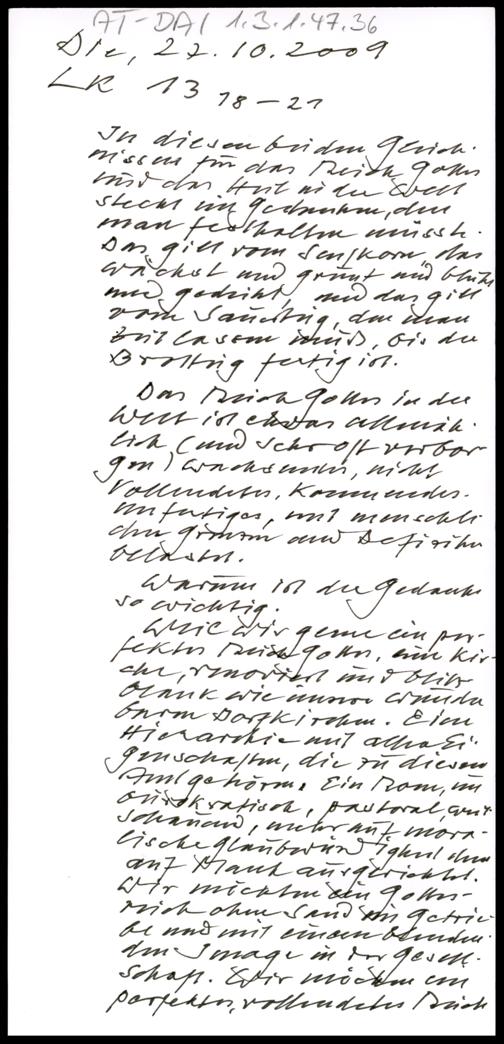 AT-DAI 1.3.1.47.36
Die, 27.10.2009
LK 13 18-21
In diesen beiden Gleich-
nissen für das Reich Gottes
und das Heil in der Welt
steckt ein Gedanken, den
man festhalten müsste.
Das gilt vom Senfkorn, das
wächst und grünt und blüht
und gedeiht, und das gilt
vom Sauerteig, den man
zeit lassen muß, bis der
Brotteig fertig ist.
Das Reich Gottes in der
Welt ist etwas allmäh-
lich, (und sehr oft verbor-
gen) wachsendes, nicht
vollendetes, kommendes.
unfertiges, mit menschli-
chen Grenzen und Defiziten
belastet.
Warum ist der Gedanke
so wichtig.
Weil wir gerne ein per-
fektes Reich Gottes, eine Kir-
che, renoviert und blitz
blank wie unsere wunder
baren Dorfkirchen. Eine
Hierarchie mit allen Ei-
genschaften, die zu diesem
Amt gehören. Ein Rom, un
bürokratisch, pastoral, weit
schauend, mehr auf mora-
lische Glaubwürdigkeit denn
auf Macht ausgerichtet.
Wir möchten ein Gottes-
reich ohne Sand im Getrie
be und mit einem blenden-
den Image in der Gesell-
schaft. Wir möchten ein
perfektes, vollendetes Reich